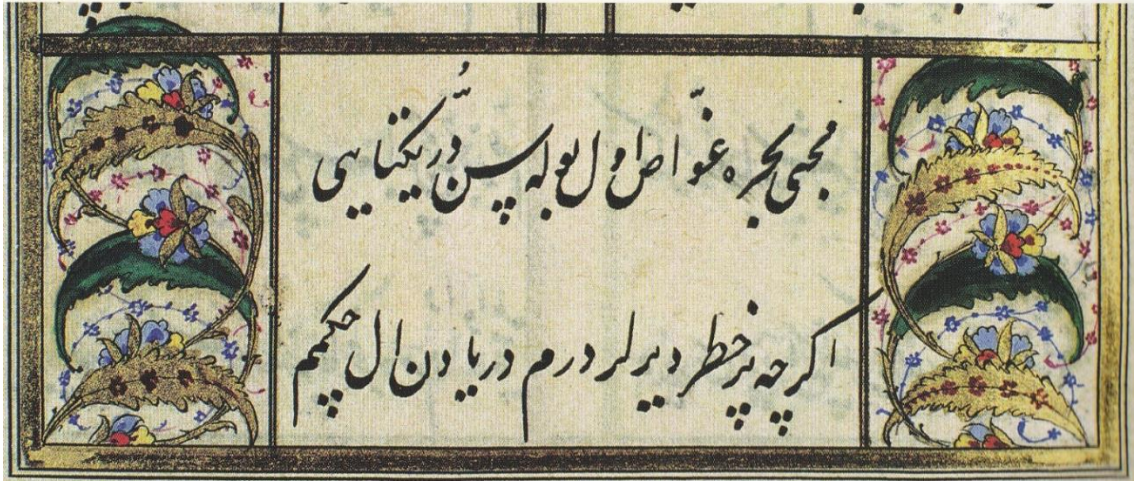 محبی بحره غوّاص اول بوله سن دُرّ یکتایی
اکرچه پرخطر دیرلر درم دریادن ال چکمم